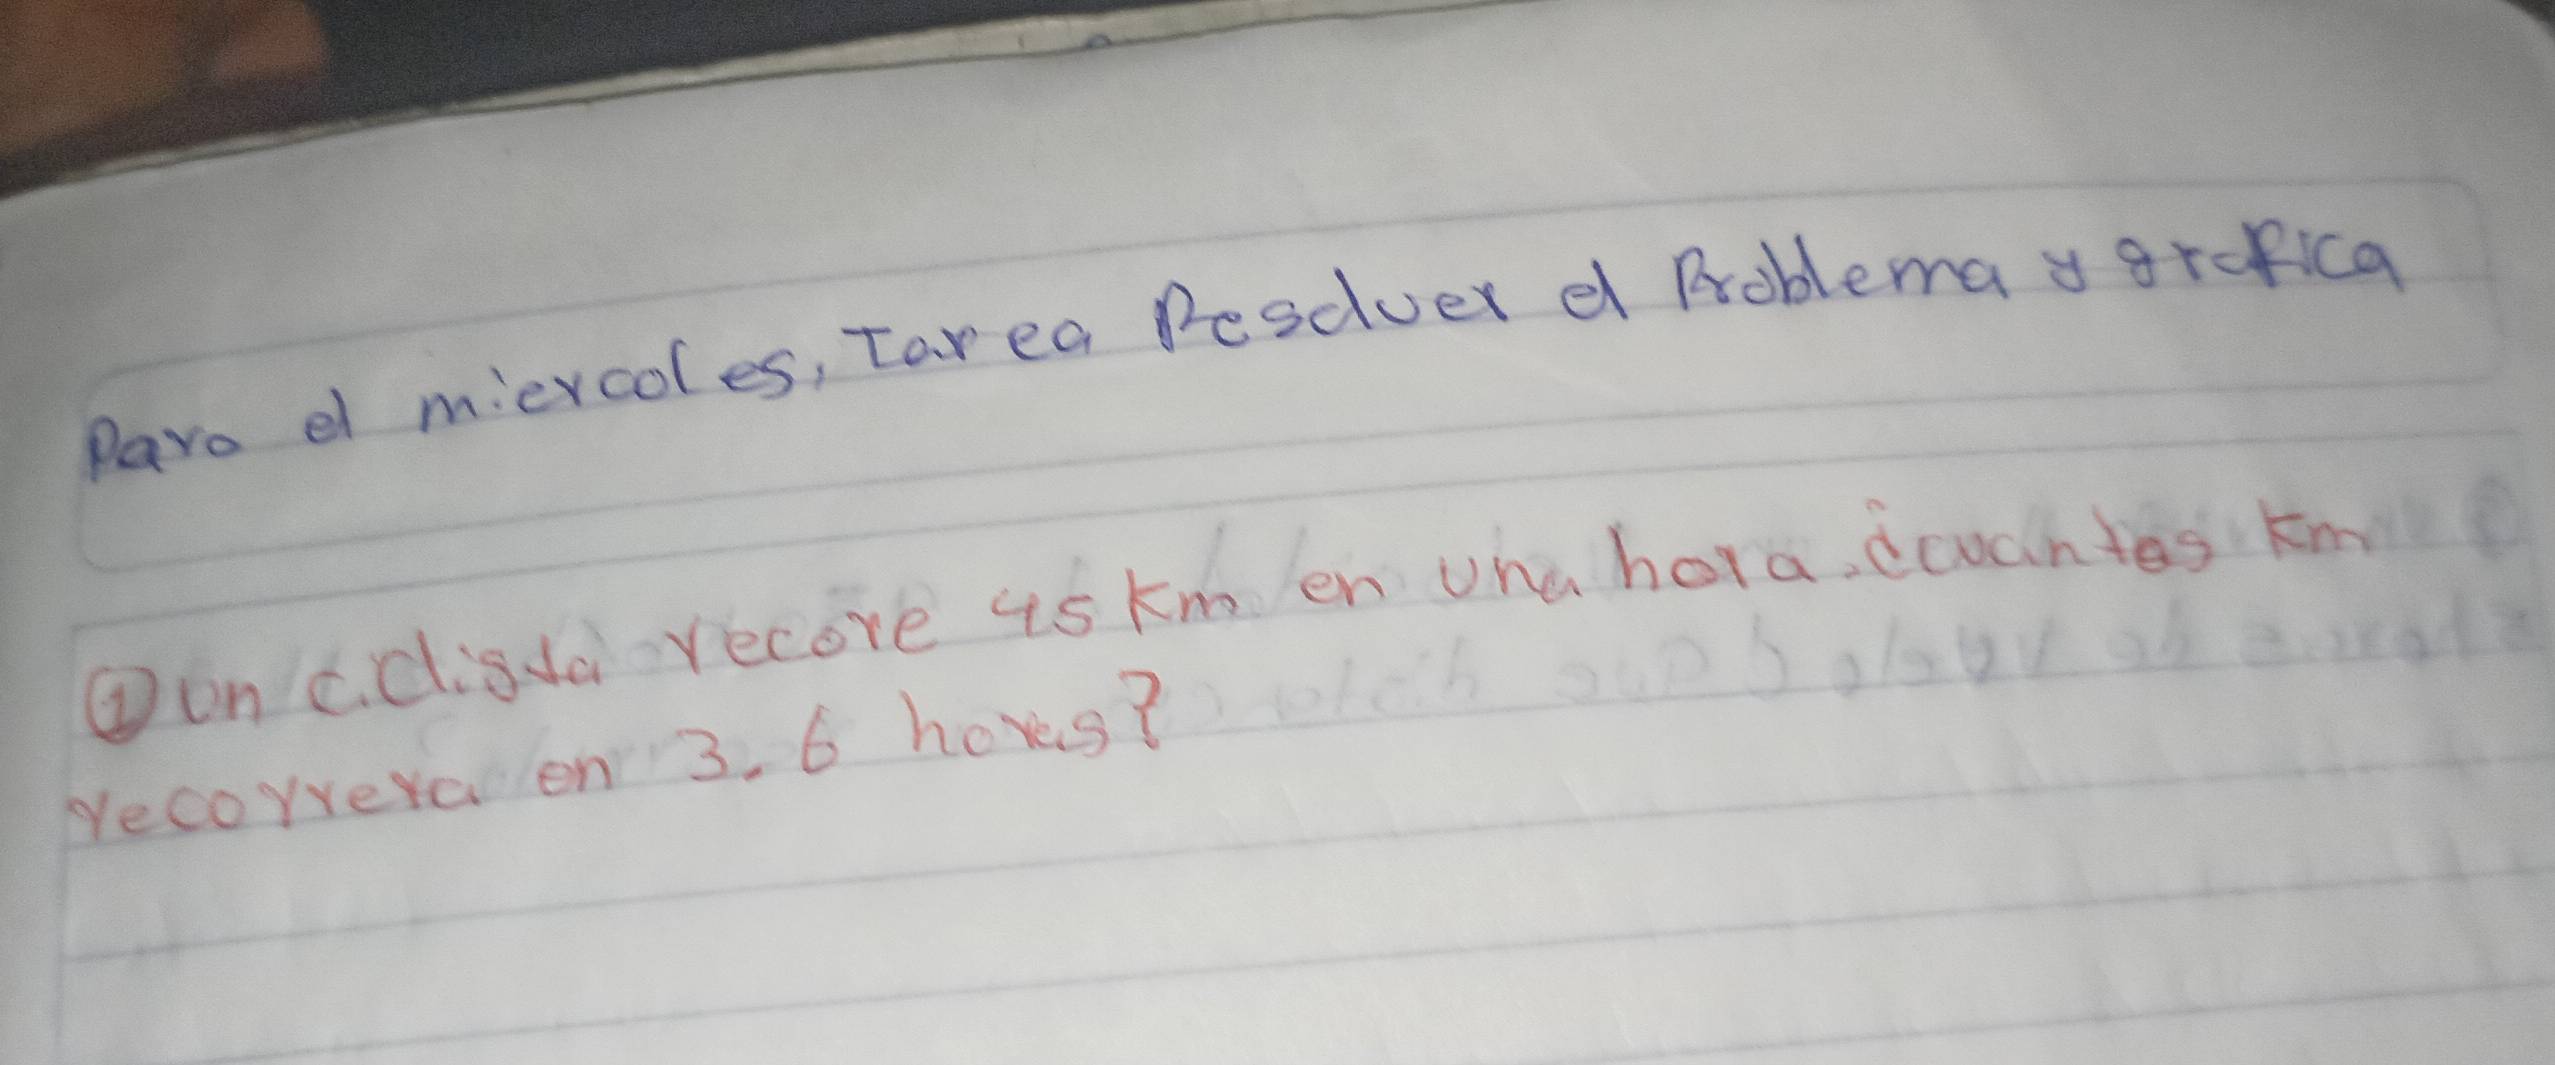 Para el miercoles, Tarea Resolver el Problema y grafica
① Un ciclista recore 45 Km en una hora. ¿cuantos Km
recorrera en 3.6 horas?